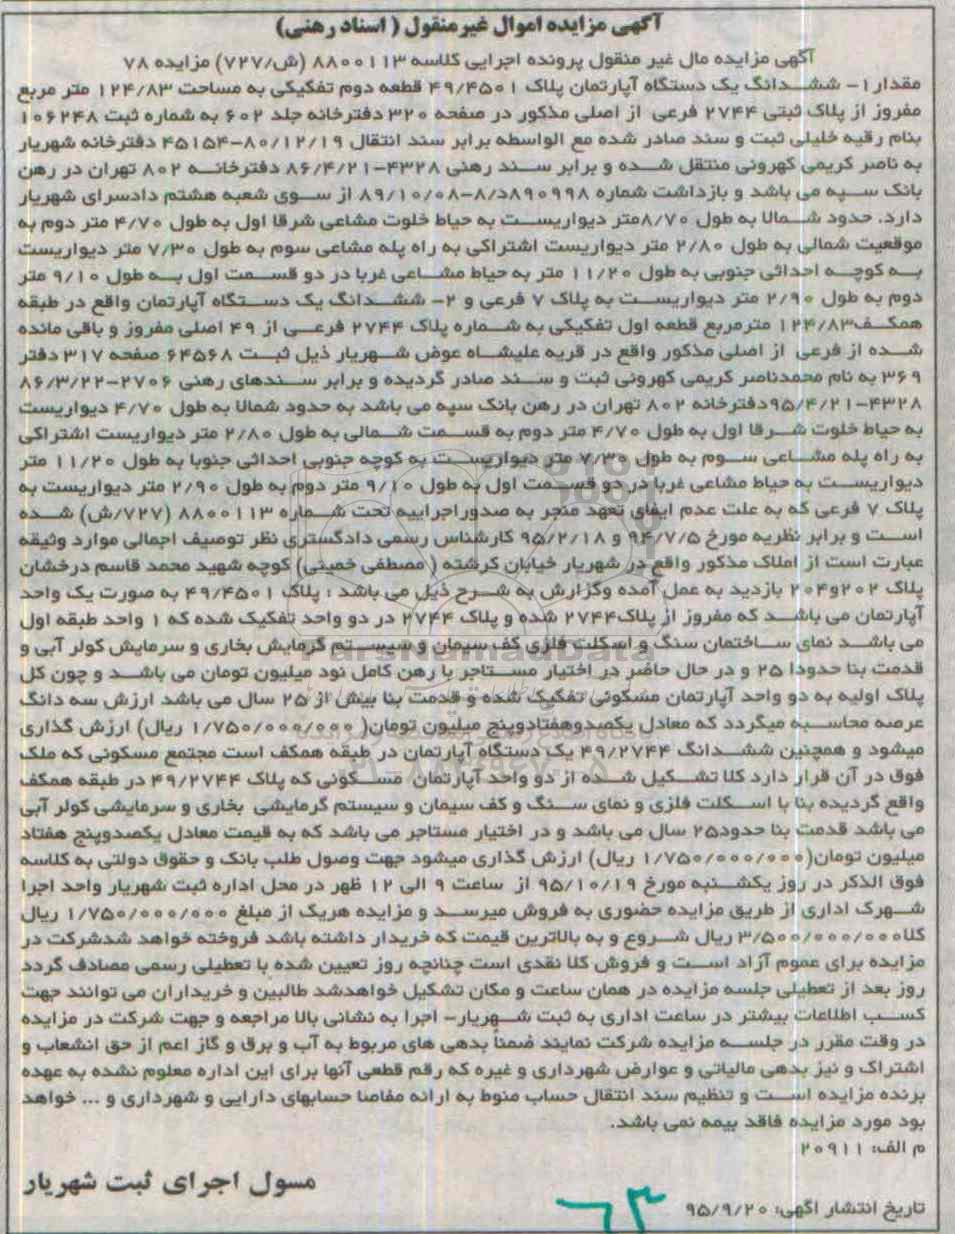 آگهی مزایده اموال غیرمنقول ( اسناد رهنی)
آگهی مزایده مال غیر منقول پرونده اجرایی کلاسه ۸۸۰۰۱۱۳ (ش/۷۲۷) مزایده ۷۸
مقدار ۱- ششدانگ یک دستگاه آپارتمان پلاک ۴۹/۴۵۰۱ قطعه دوم تفکیکی به مساحت ۱۲۴/۸۳ متر مربع
مفروز از پلاک ثبتی ۲۷۴۴ فرعی از اصلی مذکور در صفحه ۳۲۰ دفترخانه جلد ۶۰۲ به شماره ثبت ۱۰۶۲۴۸
بنام رقیه خلیلی ثبت و سند صادر شده مع الواسطه برابر سند انتقال ۸۰/۱۲/۱۹-۴۵۱۵۴ دفترخانه شهریار
به ناصر کریمی کهرونی منتقل شده و برابر سند رهنی ۴۳۲۸-۸۶/۴/۲۱ دفترخانه ۸۰۲ تهران در رهن
بانک سپه می باشد و بازداشت شماره ۸۹۰۹۹۸د/۸-۸۹/۱۰/۰۸ از سوی شعبه هشتم دادسرای شهریار
دارد. حدود شمالا به طول ۸/۷۰متر دیواریست به حیاط خلوت مشاعی شرقا اول به طول ۴/۷۰ متر دوم به
موقعیت شمالی به طول ۲/۸۰ متر دیواریست اشتراکی به راه پله مشاعی سوم به طول ۷/۳۰ متر دیواریست
به کوچه احداثی جنوبی به طول ۱۱/۲۰ متر به حیاط مشاعی غربا در دو قسمت اول به طول ۹/۱۰ متر
دوم به طول ۲/۹۰ متر دیواریست به پلاک ۷ فرعی و ۲- ششدانگ یک دستگاه آپارتمان واقع در طبقه
همکف۱۲۴/۸۳ مترمربع قطعه اول تفکیکی به شماره پلاک ۲۷۴۴ فرعی از ۴۹ اصلی مفروز و باقی مانده
شده از فرعی از اصلی مذکور واقع در قریه علیشاه عوض شهریار ذیل ثبت ۶۴۵۶۸ صفحه ۳۱۷ دفتر
۳۶۹ به نام محمدناصر کریمی کهرونی ثبت و سند صادر گردیده و برابر سندهای رهنی ۲۷۰۶-۸۶/۳/۲۲
۴۳۲۸-۹۵/۴/۲۱دفترخانه ۸۰۲ تهران در رهن بانک سپه می باشد به حدود شمالا به طول ۴/۷۰ دیواریست
به حیاط خلوت شرقا اول به طول ۴/۷۰ متر دوم به قسمت شمالی به طول ۲/۸۰ متر دیواریست اشتراکی
به راه پله مشاعی سوم به طول ۷/۳۰ متر دیواریست به کوچه جنوبی احداثی جنوبا به طول ۱۱/۲۰ متر
دیواریست به حیاط مشاعی غربا در دو قسمت اول به طول ۹/۱۰ متر دوم به طول ۲/۹۰ متر دیواریست به
پلاک ۷ فرعی که به علت عدم ایفای تعهد منجر به صدوراجراییه تحت شماره ۸۸۰۰۱۱۳ (۷۲۷/ش) شده
است و برابر نظریه مورخ ۹۴/۷/۵ و ۹۵/۲/۱۸ کارشناس رسمی دادگستری نظر توصیف اجمالی موارد وثیقه
عبارت است از املاک مذکور واقع در شهریار خیابان کرشته ( مصطفی خمینی) کوچه شهید محمد قاسم درخشان
پلاک ۲۰۲و۲۰۴ بازدید به عمل آمده وگزارش به شرح ذیل می باشد : پلاک ۴۹/۴۵۰۱ به صورت یک واحد
آپارتمان می باشد که مفروز از پلاک۲۷۴۴ شده و پلاک ۲۷۴۴ در دو واحد تفکیک شده که ۱ واحد طبقه اول
می باشد نمای ساختمان سنگ و اسکلت فلزی کف سیمان و سیستم گرمایش بخاری و سرمایش کولر آبی و
قدمت بنا حدودا ۲۵ و در حال حاضر در اختیار مستاجر با رهن کامل نود میلیون تومان می باشد و چون کل
پلاک اولیه به دو واحد آپارتمان مسکونی تفکیک شده و قدمت بنا بیش از ۲۵ سال می باشد ارزش سه دانگ
عرصه محاسبه میگردد که معادل یکصدوهفتادوپنج میلیون تومان( ۱/۷۵۰/۰۰۰/۰۰۰ ریال) ارزش گذاری
میشود و همچنین ششدانگ ۴۹/۲۷۴۴ یک دستگاه آپارتمان در طبقه همکف است مجتمع مسکونی که ملک
فوق در آن قرار دارد کلا تشکیل شده از دو واحد آپارتمان مسکونی که پلاک ۴۹/۲۷۴۴ در طبقه همکف
واقع گردیده بنا با اسکلت فلزی و نمای سنگ و کف سیمان و سیستم گرمایشی بخاری و سرمایشی کولر آبی
می باشد قدمت بنا حدود۲۵ سال می باشد و در اختیار مستاجر می باشد که به قیمت معادل یکصدوپنج هفتاد
میلیون تومان(۱/۷۵۰/۰۰۰/۰۰۰ ریال) ارزش گذاری میشود جهت وصول طلب بانک و حقوق دولتی به کلاسه
فوق الذکر در روز یکشنبه مورخ ۹۵/۱۰/۱۹ از ساعت ۹ الی ۱۲ ظهر در محل اداره ثبت شهریار واحد اجرا
شهرک اداری از طریق مزایده حضوری به فروش میرسد و مزایده هریک از مبلغ ۱/۷۵۰/۰۰۰/۰۰۰ ریال
کلا۳/۵۰۰/۰۰۰/۰۰۰ ریال شروع و به بالاترین قیمت که خریدار داشته باشد فروخته خواهد شدشرکت در
مزایده برای عموم آزاد است و فروش کلا نقدی است چنانچه روز تعیین شده با تعطیلی رسمی مصادف گردد
روز بعد از تعطیلی جلسه مزایده در همان ساعت و مکان تشکیل خواهدشد طالبین و خریداران می توانند جهت
کسب اطلاعات بیشتر در ساعت اداری به ثبت شهریار- اجرا به نشانی بالا مراجعه و جهت شرکت در مزایده
در وقت مقرر در جلسه مزایده شرکت نمایند ضمنا بدهی های مربوط به آب و برق و گاز اعم از حق انشعاب و
اشتراک و نیز بدهی مالیاتی و عوارض شهرداری و غیره که رقم قطعی آنها برای این اداره معلوم نشده به عهده
برنده مزایده است و تنظیم سند انتقال حساب منوط به ارائه مفاصا حسابهای دارایی و شهرداری و ... خواهد
بود مورد مزایده فاقد بیمه نمی باشد.
م الف: ۲۰۹۱۱
مسول اجرای ثبت شهریار
تاریخ انتشار اگهی: ۹۵/۹/۲۰